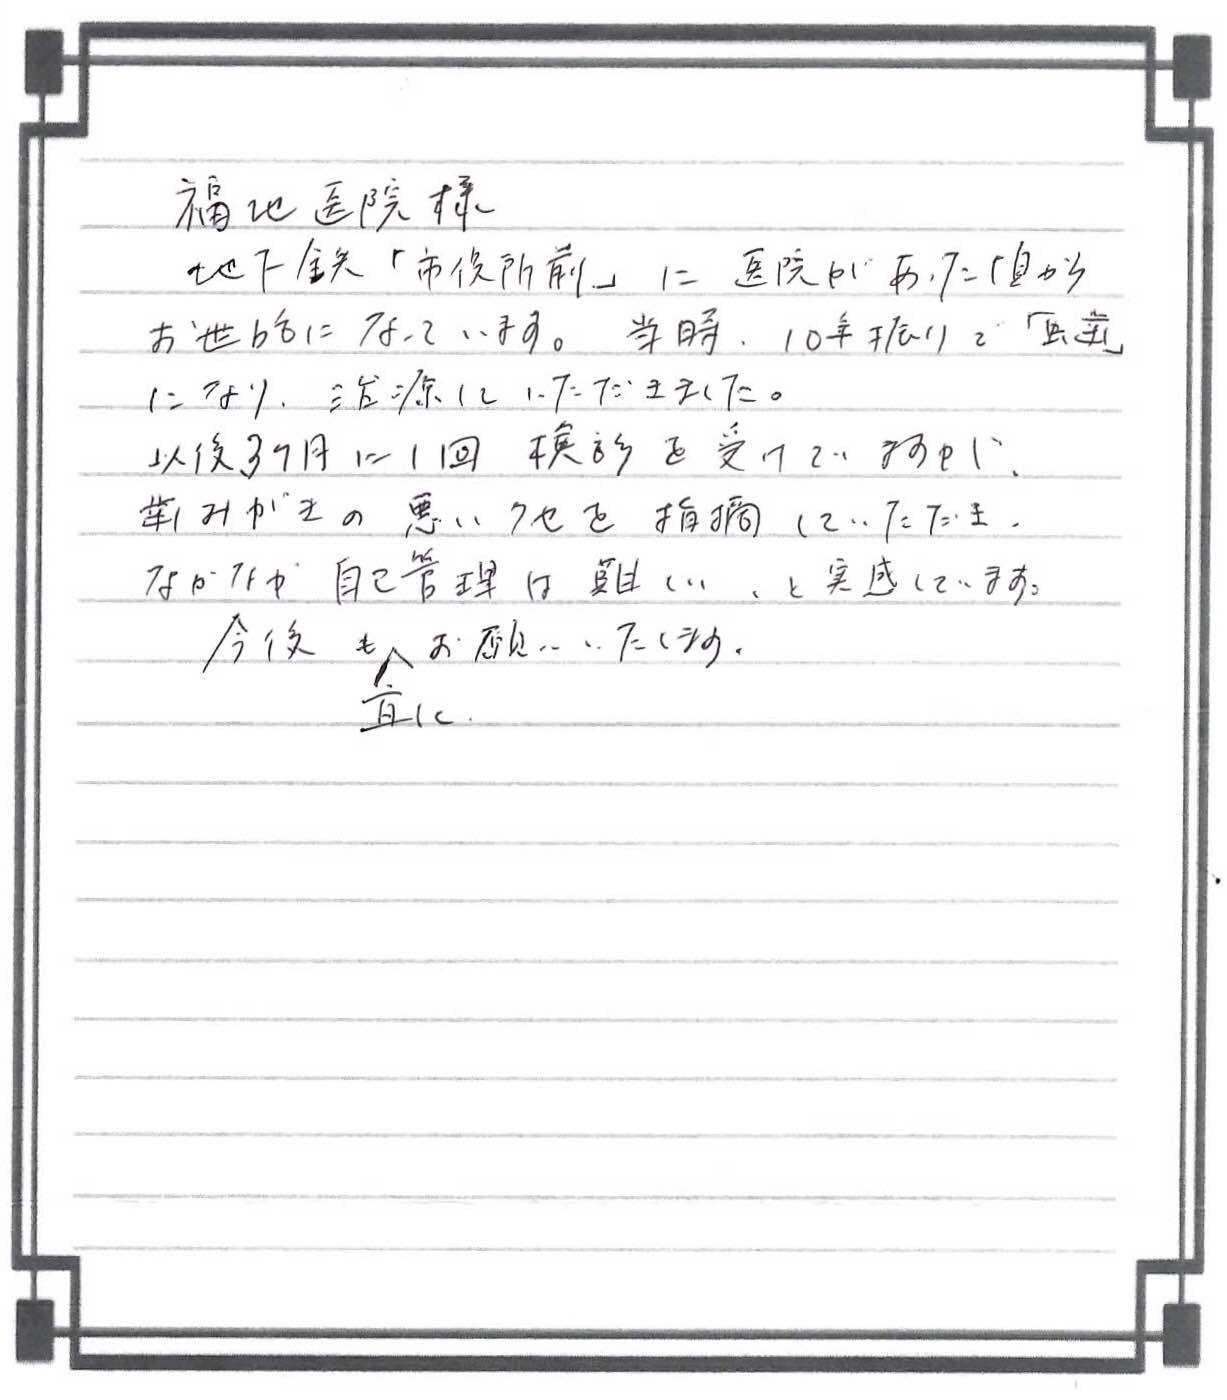 福地医院様
地下鉄「市役所前」に医院があった頃から
お世話になっています。当時、10年振りで「虫歯」
になり、治療していただきました。
以後3ケ月に1回 検診を受けていますが、
歯みがきの悪いクセを指摘していただき、
なかなか自己管理は難しい、と実感しています。
今後もお願いいたします。
宜しく